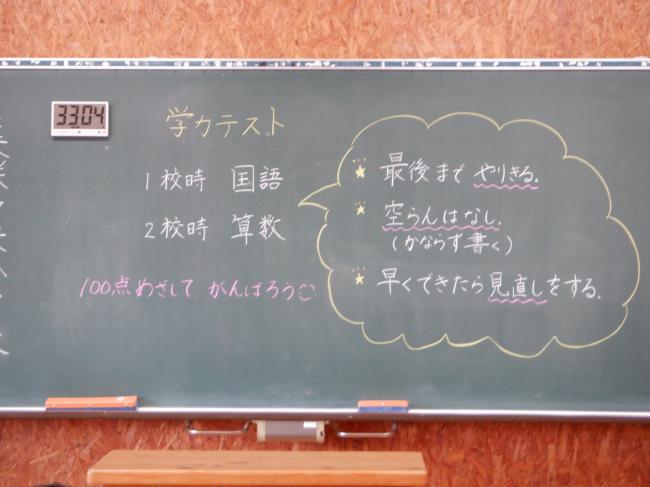 33:04
学力テスト
1校時 国語
2校時 算数
100点めざして がんばろう
最後まで やりきる.
空らんはなし.
(かならず書く)
早くできたら見直しをする.